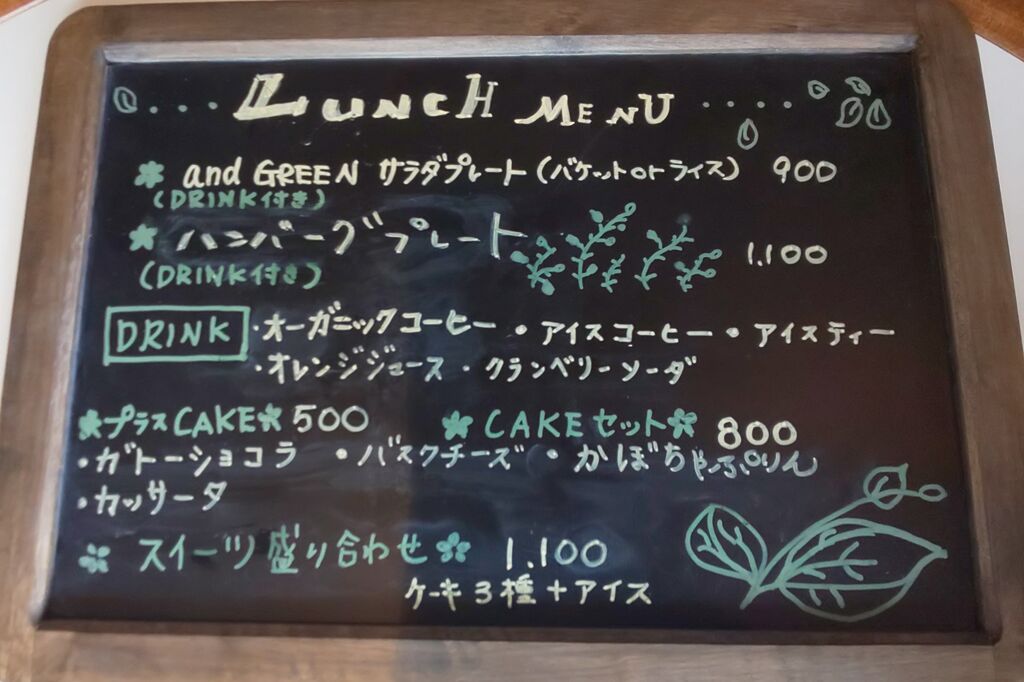 LUNCH MENU
and GREEN サラダプレート(バケットorライス) 900
(DRINK付き)
ハンバーグプレート 1.100
(DRINK付き)
DRINK ・オーガニックコーヒー ・アイスコーヒー・アイスティー
・オレンジジュース・クランベリーソーダ
プラスCAKE 500 CAKEセット 800
・ガトーショコラ ・バスクチーズ ・かぼちゃぷりん
・カッサータ
スイーツ盛り合わせ 1.100
ケーキ3種+アイス